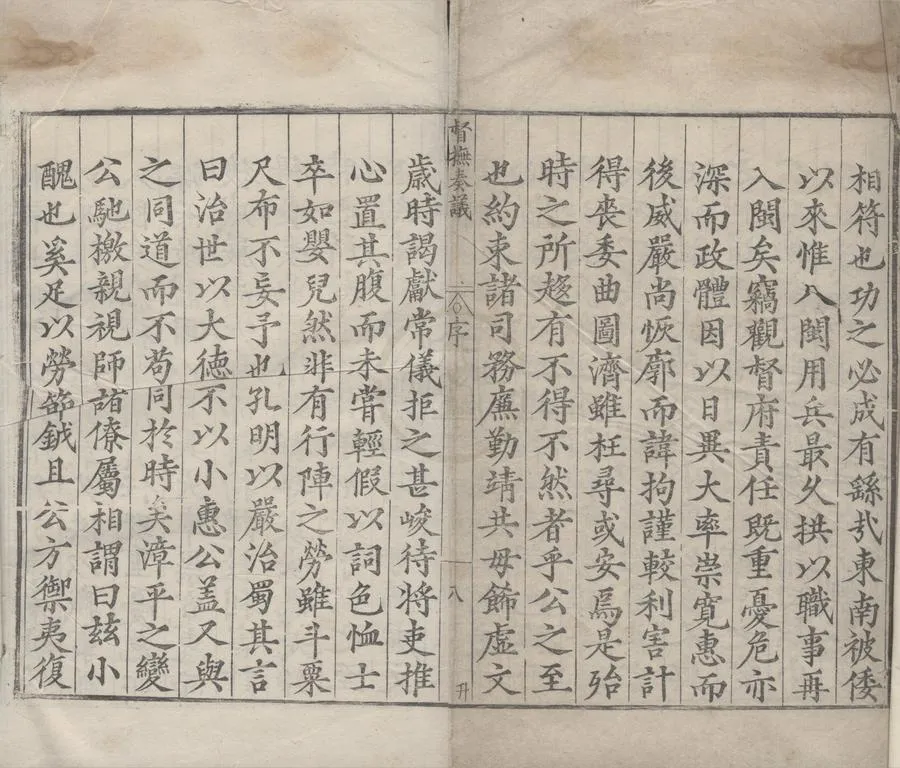 相符也功之必成有繇㢤東南被倭
以來惟八閩用兵最久拱以職事再
入閩矣竊觀督府責任既重憂危亦
深而政體因以日異大率崇寬惠而
後威嚴尚恢廓而諱拘謹較利害計
得喪委曲圖濟雖枉尋或安焉是殆
時之所趍有不得不然者乎公之至
也約束諸司務廉勤靖共毋餙虛文
督撫奏議
序
八
升
歲時謁獻常儀拒之甚峻待將吏推
心置其腹而未嘗輕假以詞色恤士
卒如嬰兒然非有行陣之勞雖斗粟
尺布不妄予也孔明以嚴治蜀其言
曰治世以大德不以小惠公盖又與
之同道而不苟同於時矣漳平之變
公馳檄親視師諸僚屬相謂曰玆小
醜也奚足以勞節鉞且公方禦夷復